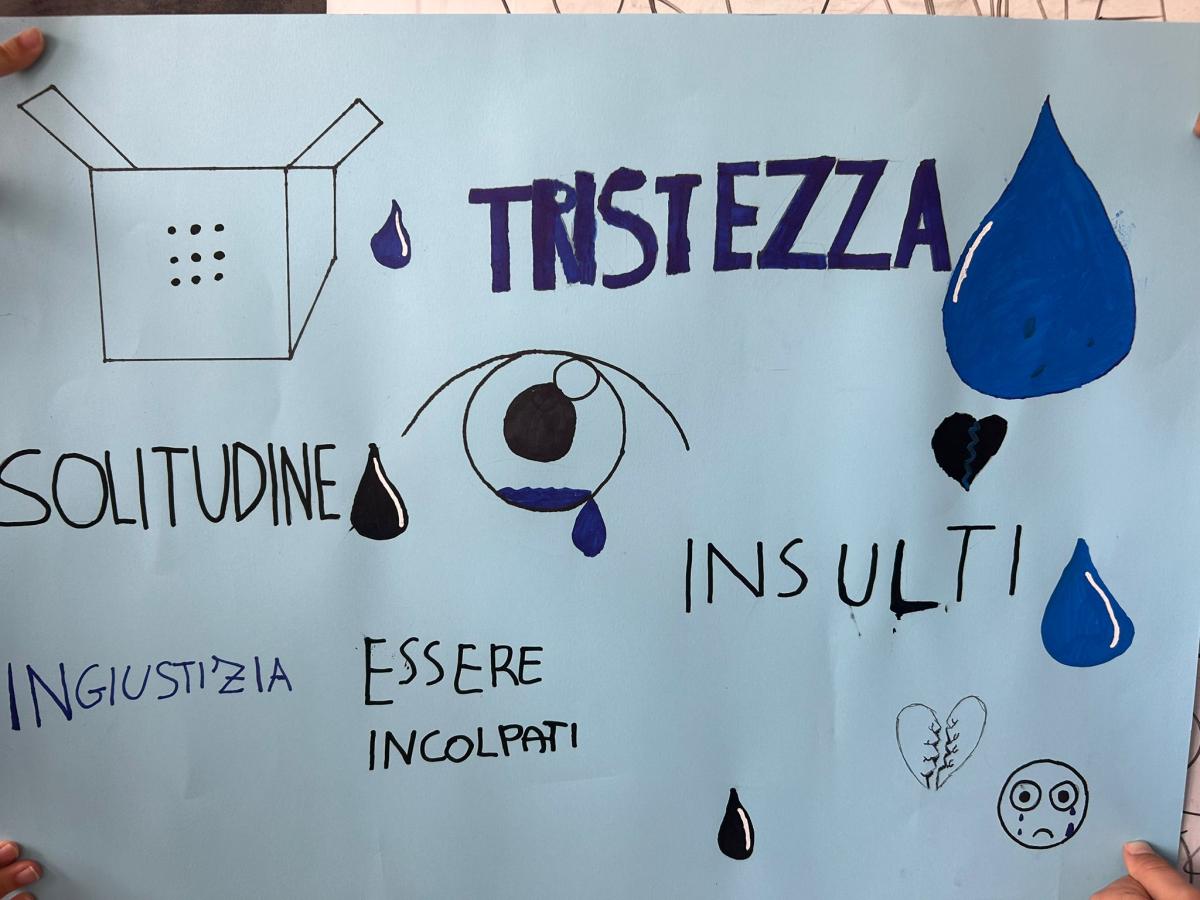 TRISTEZZA
SOLITUDINE
INSULTI
INGIUSTIZIA
ESSERE
INCOLPATI